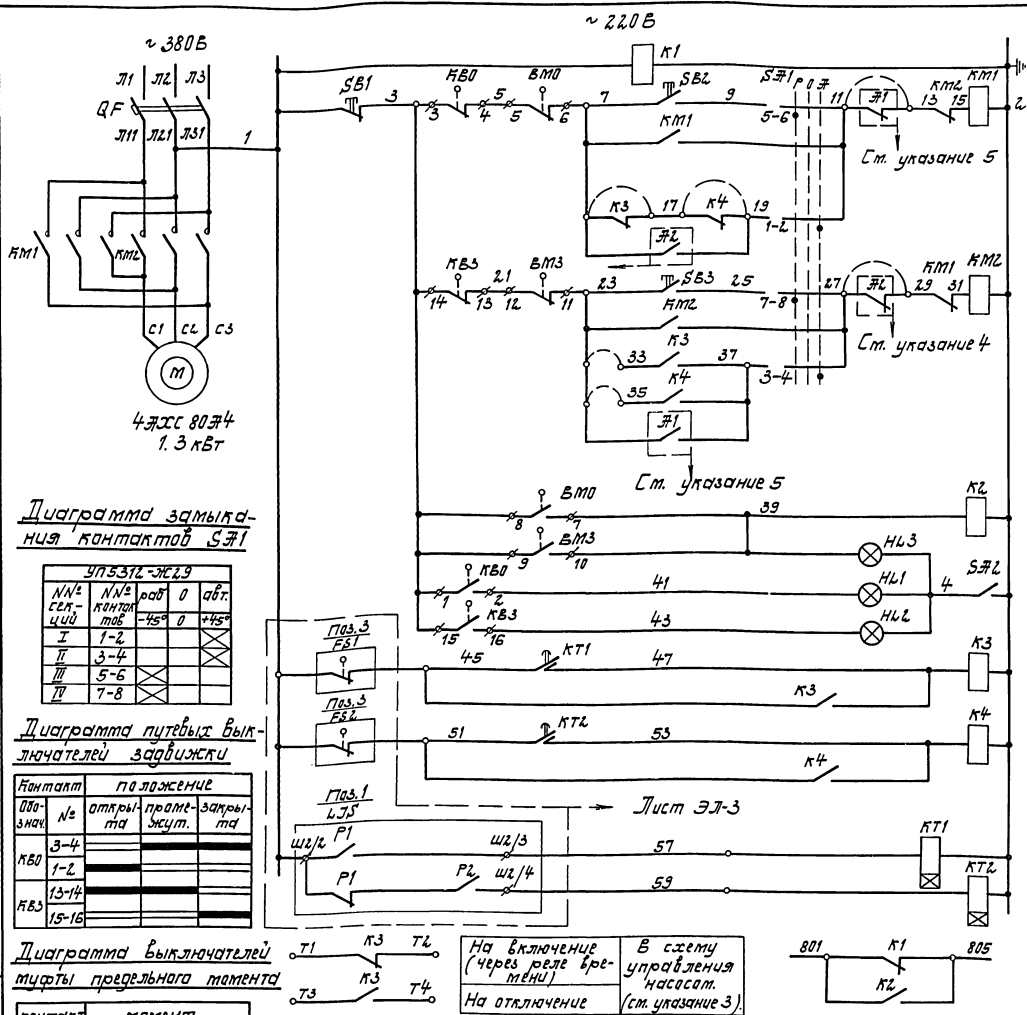 ~ 380В
~ 220В
Л1 Л2 Л3
QF
Л11 Л21 Л31
1
КМ1
КМ2
С1 С2 С3
М
4АХС 80А4
1.3 кВт
К1
SB1 3 КВ0 5 ВМ0 7 SB2 9 SA1 Р 0 А 11 А1 КМ2 КМ1
3 4 5 6 5-6 13 15 2
КМ1
См. указание 5
К3 17 К4 19
1-2
А2
КВ3 21 ВМ3 23 SB3 25 27 А2 КМ1 КМ2
14 13 12 11 7-8 29 31
КМ2
См. указание 4
33 К3 37
3-4
35 К4
А1
См. указание 5
ВМ0 39 К2
8 7
ВМ3 HL3
9 10
КВ0 41 HL1 4 SA2
1 2
КВ3 43 HL2
15 16
Поз.3
FS1 45 КТ1 47 К3
К3
Поз.3
FS2 51 КТ2 53 К4
К4
Поз.1
LJS
Лист ЭЛ-3
Ш2/2 Р1 Ш2/3 57 КТ1
Р1 Р2 Ш2/4 59 КТ2
Диаграмма замыка-
ния контактов SA1
УП5312-Ж29
№№ сек-ций №№ контактов раб 0 авт.
-45° 0 +45°
I 1-2
II 3-4
III 5-6
IV 7-8
Диаграмма путевых вык-
лючателей задвижки
Контакт положение
Обо-знач. № откры-та проме-жут. закры-та
КВ0 3-4
1-2
КВ3 13-14
15-16
Диаграмма выключателей
муфты предельного момента
контакт момент
Т1 К3 Т2
Т3 К3 Т4
На включение
(через реле вре-
мени)
На отключение
В схему
управления
насосом.
(см. указание 3).
801 К1 805
К2